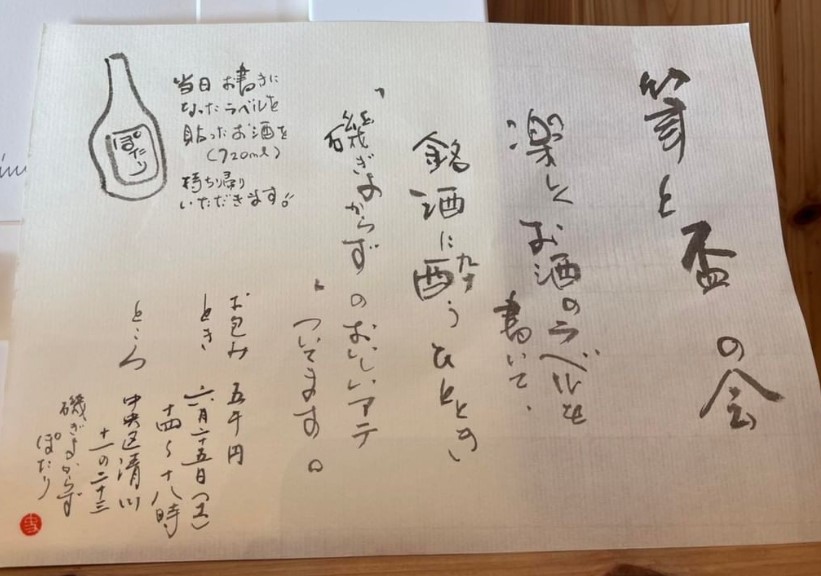 筆と盃の会
楽しくお酒のラベルを
書いて、
銘酒に酔うひととき
「磯ぎよからず」のおいしいアテ
ついてます。
当日お書きに
なったラベルを
貼ったお酒を
(720ml)
持ち帰り
いただきます!!
ぽたり
お包み 五千円
とき 六月二十五日(土)
十四〜十八時
ところ 中央区清川
十一の二十三
磯ぎよからず
ぽたり